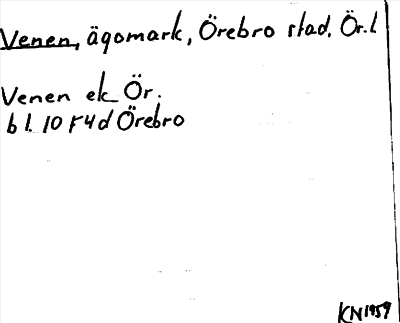 Venen, ägomark, Örebro stad. Ör. l.
Venen ek Ör.
bl. 10 F4d Örebro
KN 1959